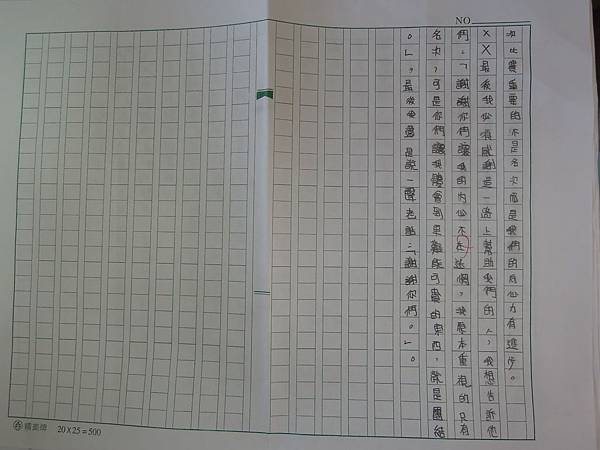 NO
次比賽重要的不是名次而是我們的向心力有進步。
XX最後我必須感謝這一路上幫助我們的人，我想告訴他
們：「謝謝你們讓我的內心不在迷惘，我原本重視的只有
名次，可是你們讓我體會到更難能可貴的東西，就是團結
。」，最後我還是說一聲老話：「謝謝你們。」。
20X25=500